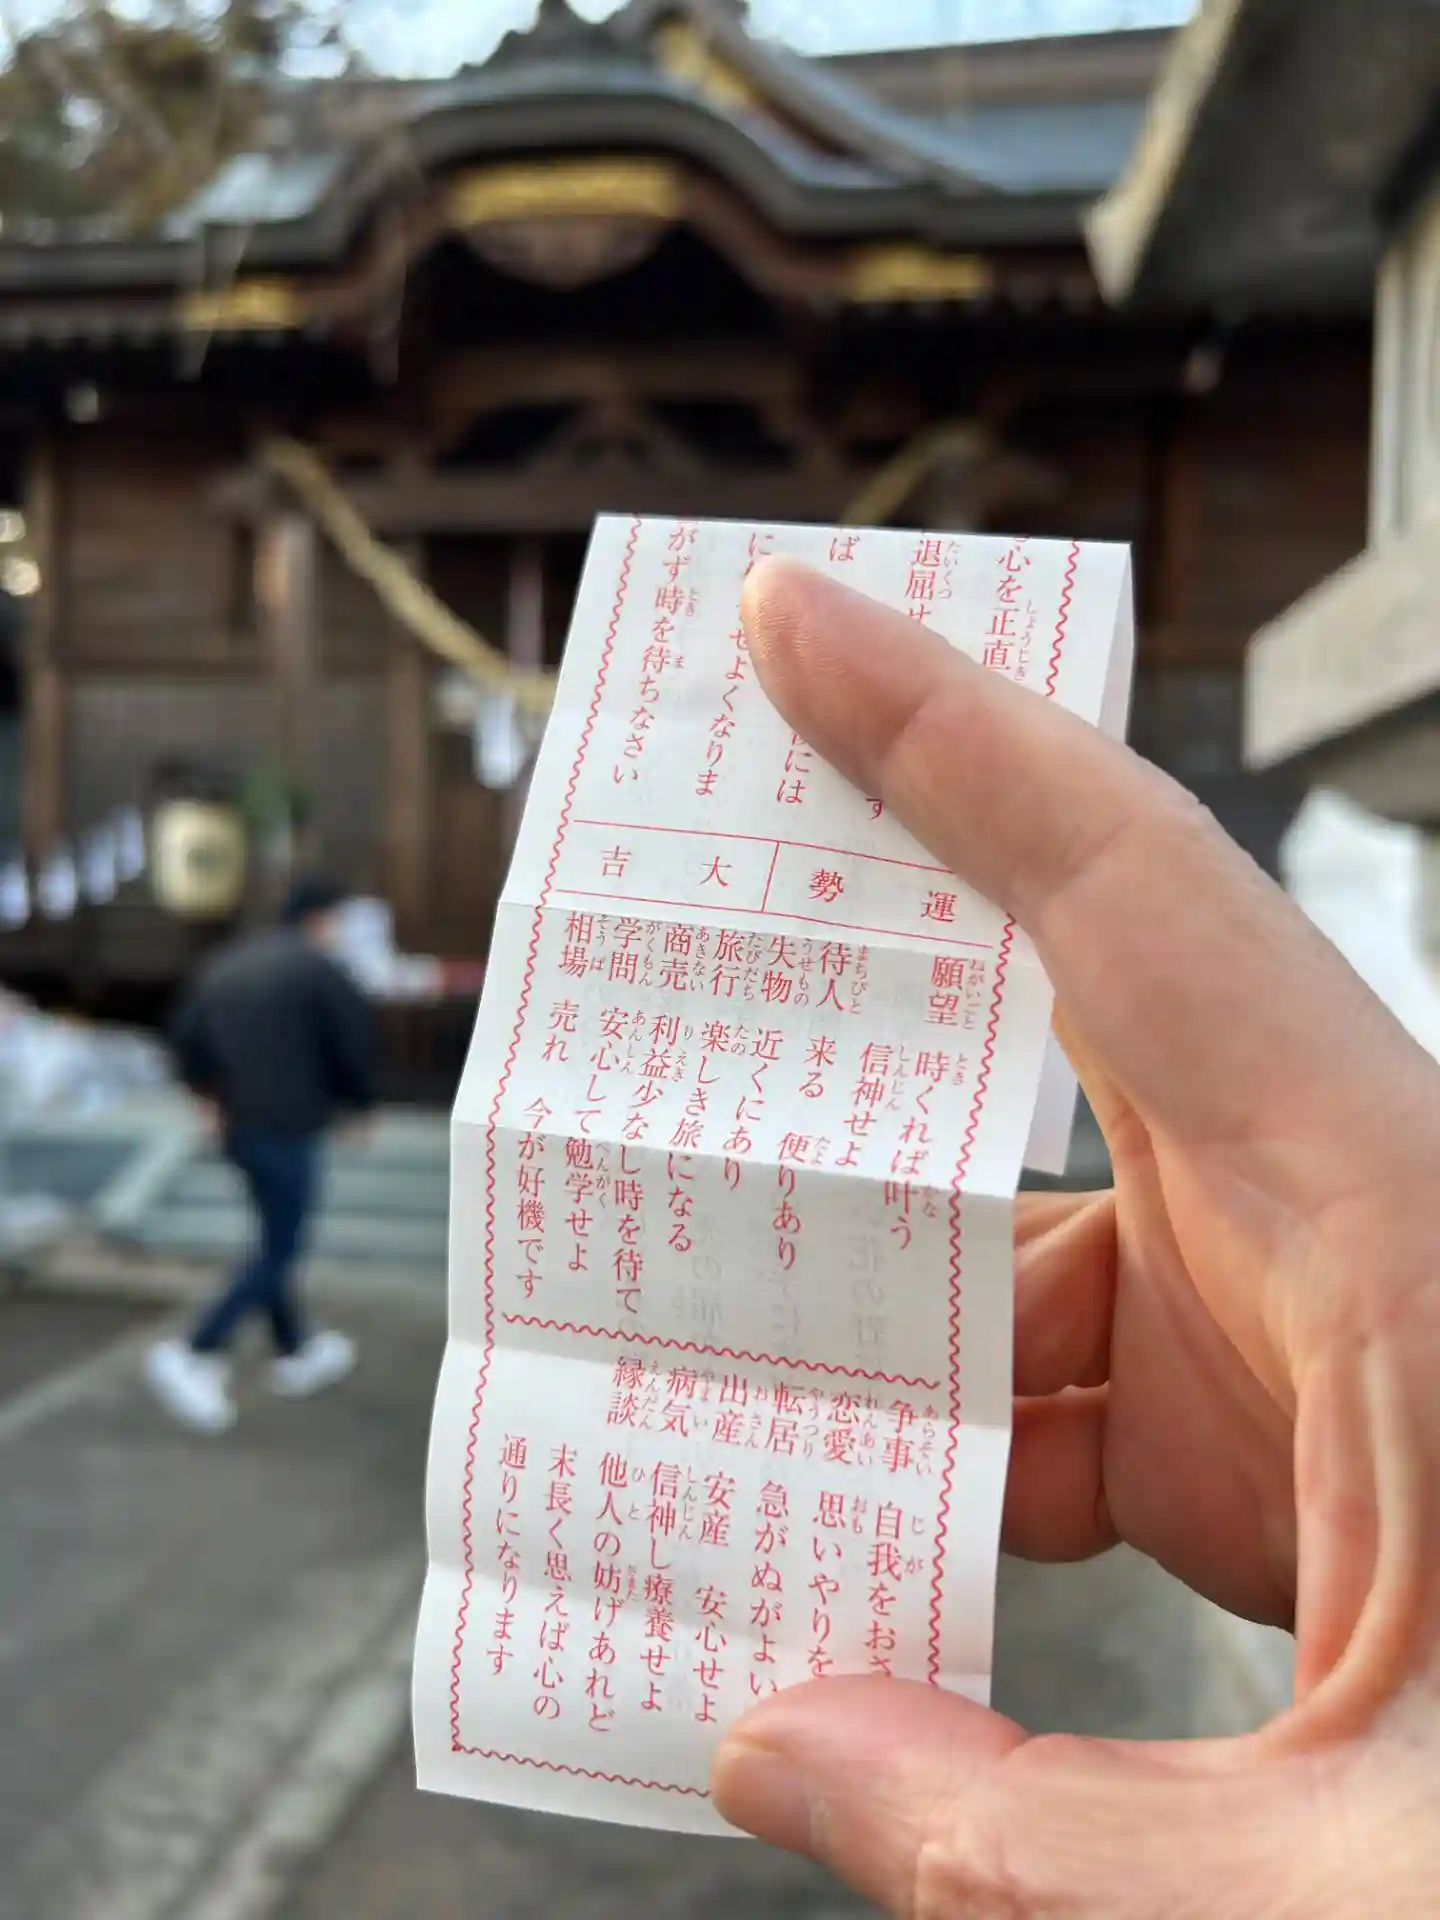 心を正直
退屈せ
す
ば
には
に
せよくなりま
がず時を待ちなさい
運勢 大吉
願望 時くれば叶う
信神せよ
待人 来る 便りあり
失物 近くにあり
旅行 楽しき旅になる
商売 利益少なし時を待て
学問 安心して勉学せよ
相場 売れ 今が好機です
争事 自我をおさ
恋愛 思いやりを
転居 急がぬがよい
出産 安産 安心せよ
病気 信神し療養せよ
縁談 他人の妨げあれど
末長く思えば心の
通りになります